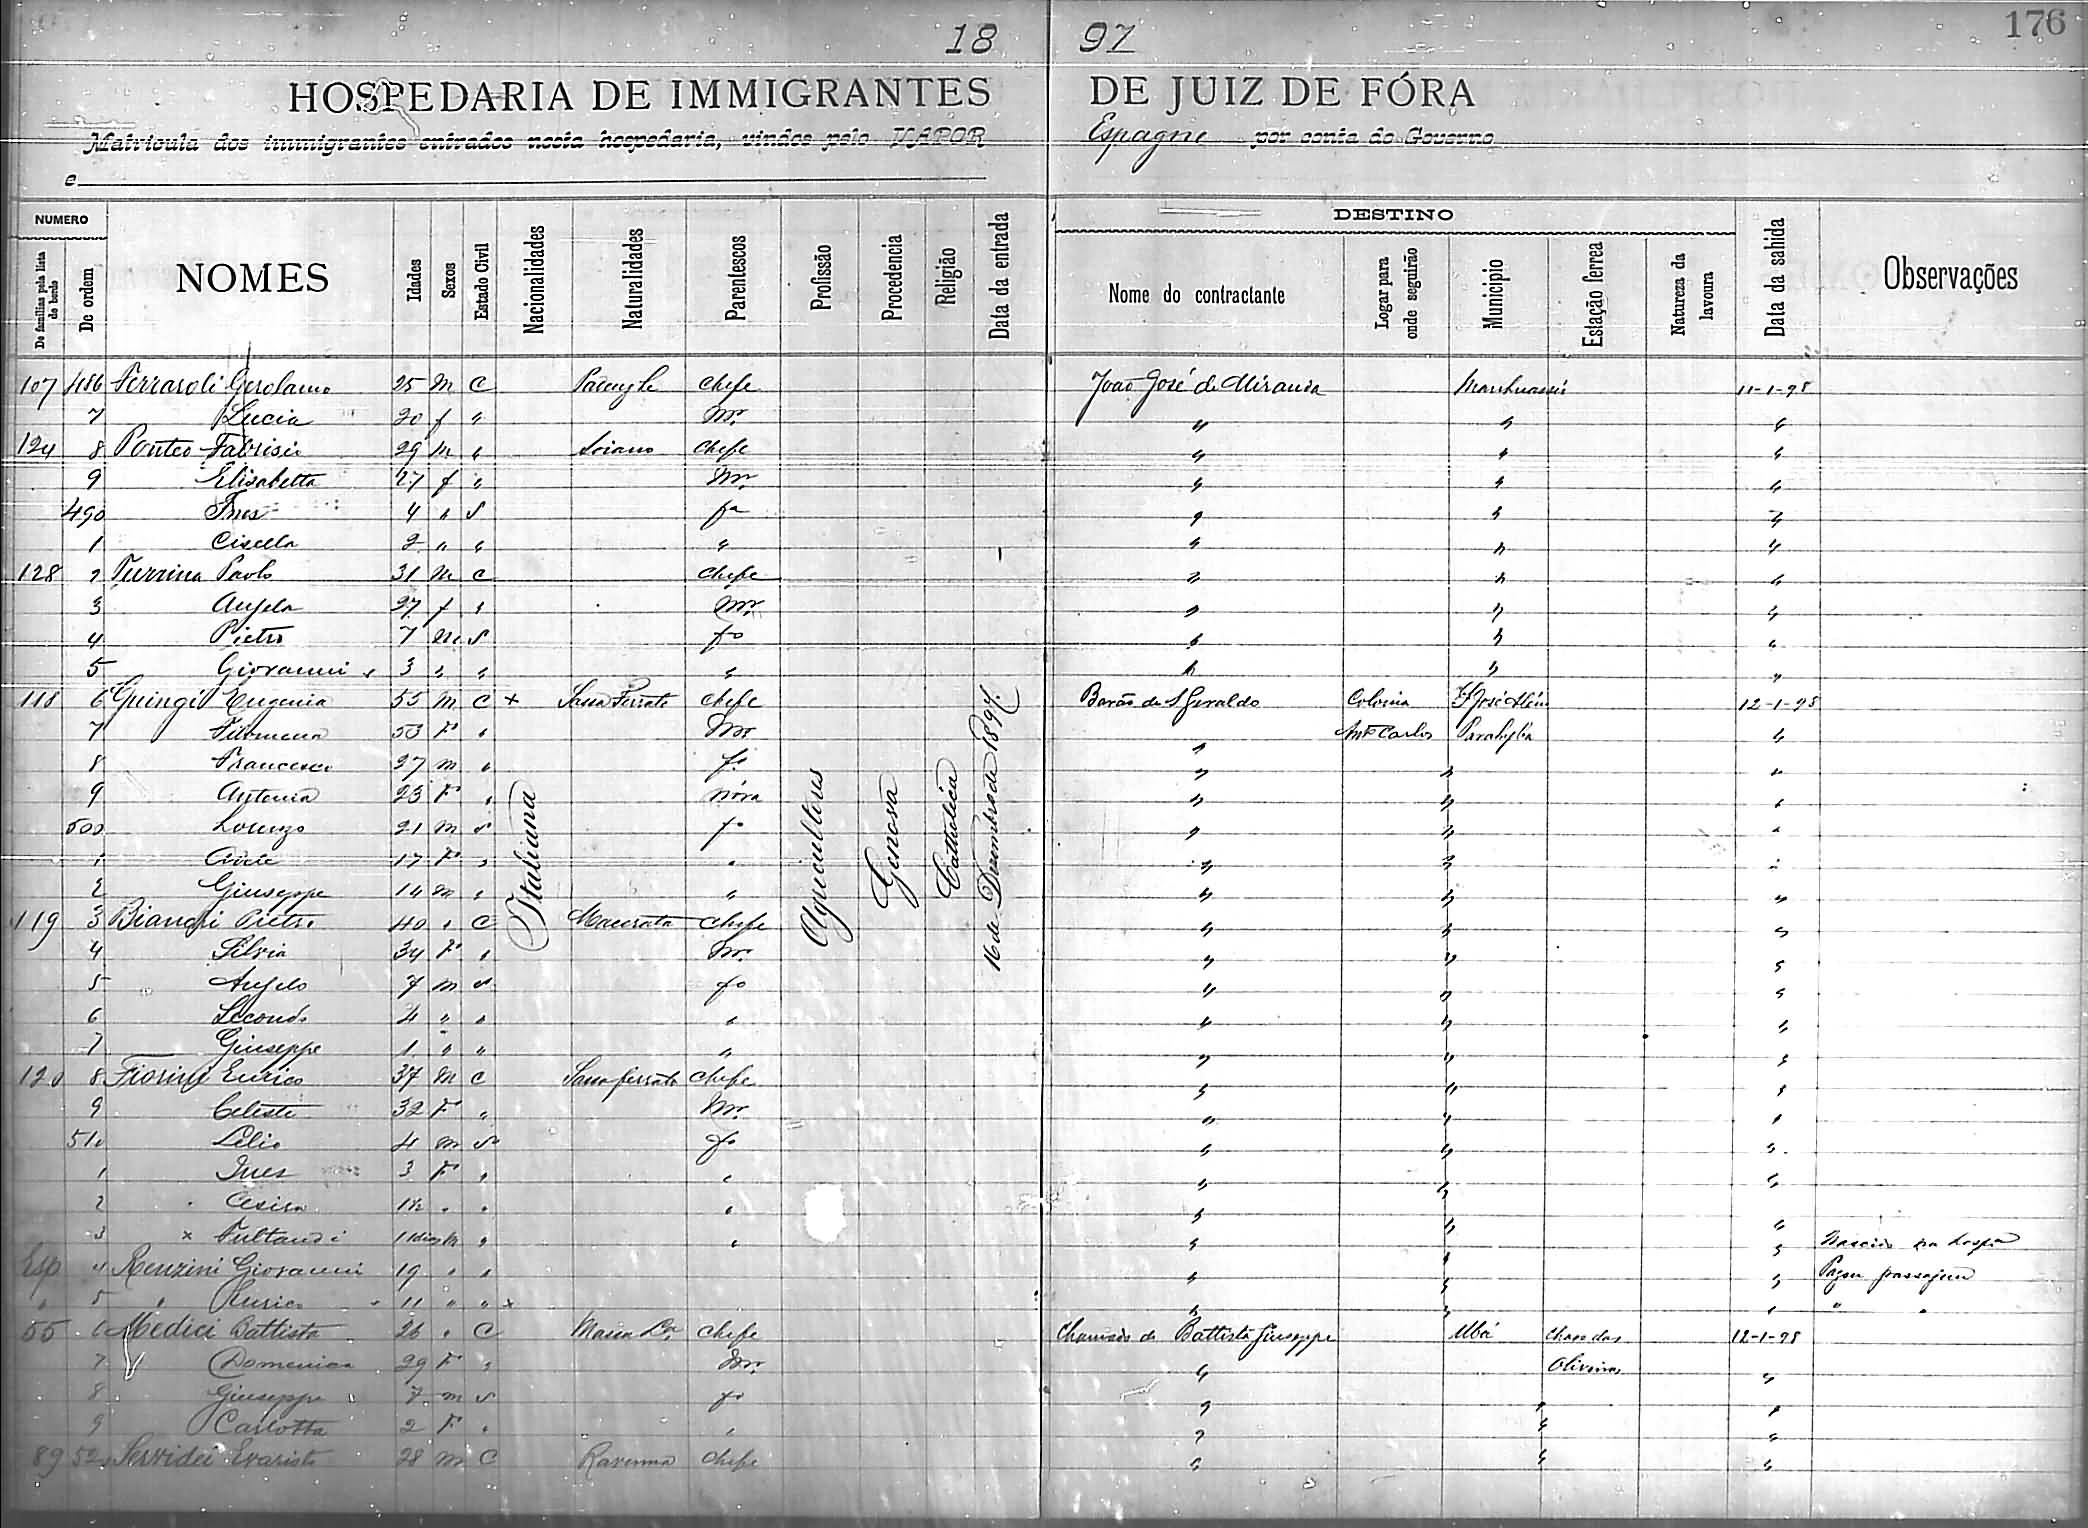 176
18 97
HOSPEDARIA DE IMMIGRANTES DE JUIZ DE FÓRA
Matricula dos immigrantes entrados nesta hospedaria, vindos pelo VAPOR Espagne por conta do Governo
e
NUMERO
De familias pela lista de bordo
De ordem
NOMES
Idades
Sexos
Estado Civil
Nacionalidades
Naturalidades
Parentescos
Profissão
Procedencia
Religião
Data da entrada
DESTINO
Nome do contractante
Logar para onde seguirão
Municipio
Estação ferrea
Natureza da lavoura
Data da sahida
Observações
107 486 Ferraroli Gerolamo 25 M C Chefe João José de Miranda 11-1-98
7 Lucia 20 f " Mr " " "
124 8 Ponteo Fabrisio 29 M " Soiano Chefe " " "
9 Elisabetta 27 f " Mr " " "
490 Ines 4 " S fa " " "
1 Cisella 2 " " " " " "
128 2 Turrina Paolo 31 M C Chefe " " "
3 Angela 27 f " Mr " " "
4 Pietro 7 M S fo " " "
5 Giovanni 3 " " " " " "
118 6 Guingi Eugenia 55 M C x Sassa Ferrato Chefe Barão de S Geraldo Colonia S José Além 12-1-98
7 Filomena 53 F " Mr " Carlos Parahyba "
8 Francesco 27 M " fo " " "
9 Antonia 23 F " nóra " " "
500 Lorenzo 21 M S fo " " "
1 17 F " " " " "
2 Giuseppe 14 M " " " " "
119 3 Bianchi Pietro 40 " C Macerata Chefe " " "
4 Silvia 34 F " Mr " " "
5 Angelo 7 M S fo " " "
6 Secondo 4 " " " " " "
7 Giuseppe 1 " " " " " "
120 8 Fiorini Enrico 37 M C Sassa ferrato Chefe " " "
9 Celeste 32 F " Mr " " "
510 Lelio 4 M S fo " " "
1 Ines 3 F " " " " "
2 Cesira " " " " " "
3 x 11 dias M " " " " " Nasceu na hospa
Esp 4 Renzini Giovanni 19 " " " " " Pagou passagem
" 5 " Enrico 11 " " x " " " " "
55 6 Medici Battista 26 " C Chefe Chamado de Battista Giuseppe Ubá Chave das 12-1-98
7 " Domenica 29 F " Mr " Oliveiras "
8 Giuseppe 7 M S fo " " "
9 Carlotta 2 F " " " " "
89 520 Servidei Evaristo 28 M C Ravenna Chefe " " "
Italiana
Agricultores
Genova
Catholica
16 de Dezembro de 1897